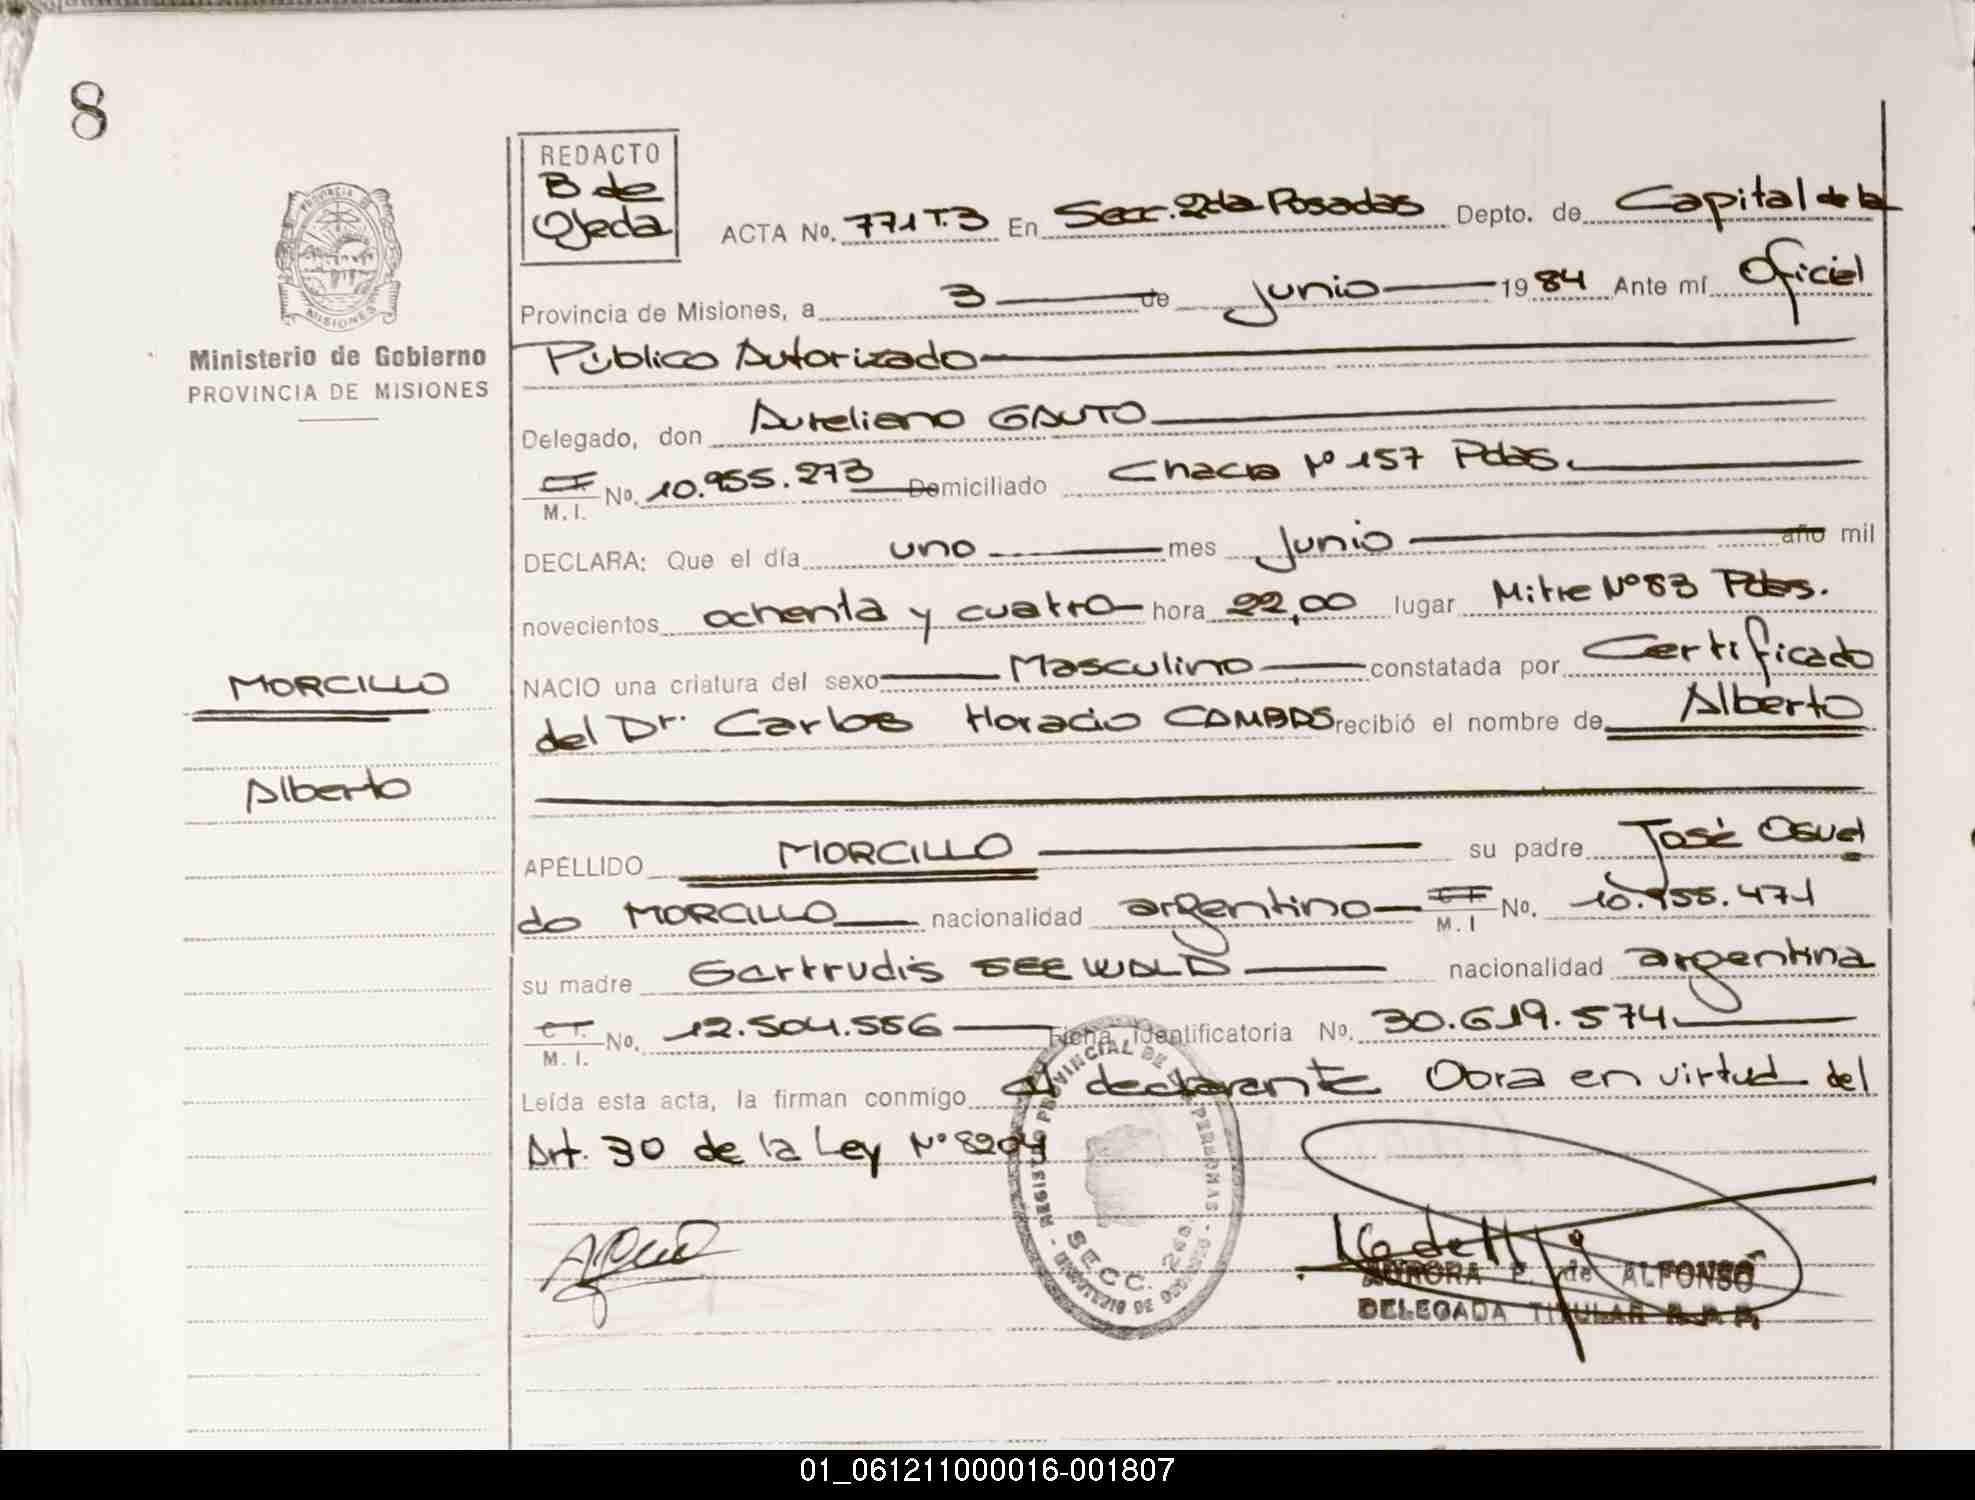 8
REDACTO
B de
Ojeda
ACTA No. 771 T.3 En Secc. 2da Posadas Depto. de Capital de la
Provincia de Misiones, a 3 de junio 1984 Ante mí Oficiel
Público Autorizado
Delegado, don Aureliano GAUTO
C.I. M.I. No. 10.955.273 Domiciliado Chacra Nº 157 Pdas.
DECLARA: Que el día uno mes junio año mil
novecientos ochenta y cuatro hora 22,00 lugar Mitre Nº 83 Pdas.
NACIO una criatura del sexo Masculino constatada por Certificado
del Dr. Carlos Horacio CAMBAS recibió el nombre de Alberto
APELLIDO MORCILLO su padre José Osval
do MORCILLO nacionalidad argentino C.I. M.I No. 10.955.471
su madre Gertrudis SEEWALD nacionalidad argentina
C.I. M.I. No. 12.504.556 Ficha Identificatoria No. 30.619.574
Leída esta acta, la firman conmigo el declarante Obra en virtud del
Art. 30 de la Ley Nº 8204
REGISTRO PROVINCIAL DE LAS PERSONAS
SECC. 2da.
AURORA E. de ALFONSO
DELEGADA TITULAR R.P.P.
PROVINCIA DE
MISIONES
Ministerio de Gobierno
PROVINCIA DE MISIONES
MORCILLO
Alberto
01_061211000016-001807